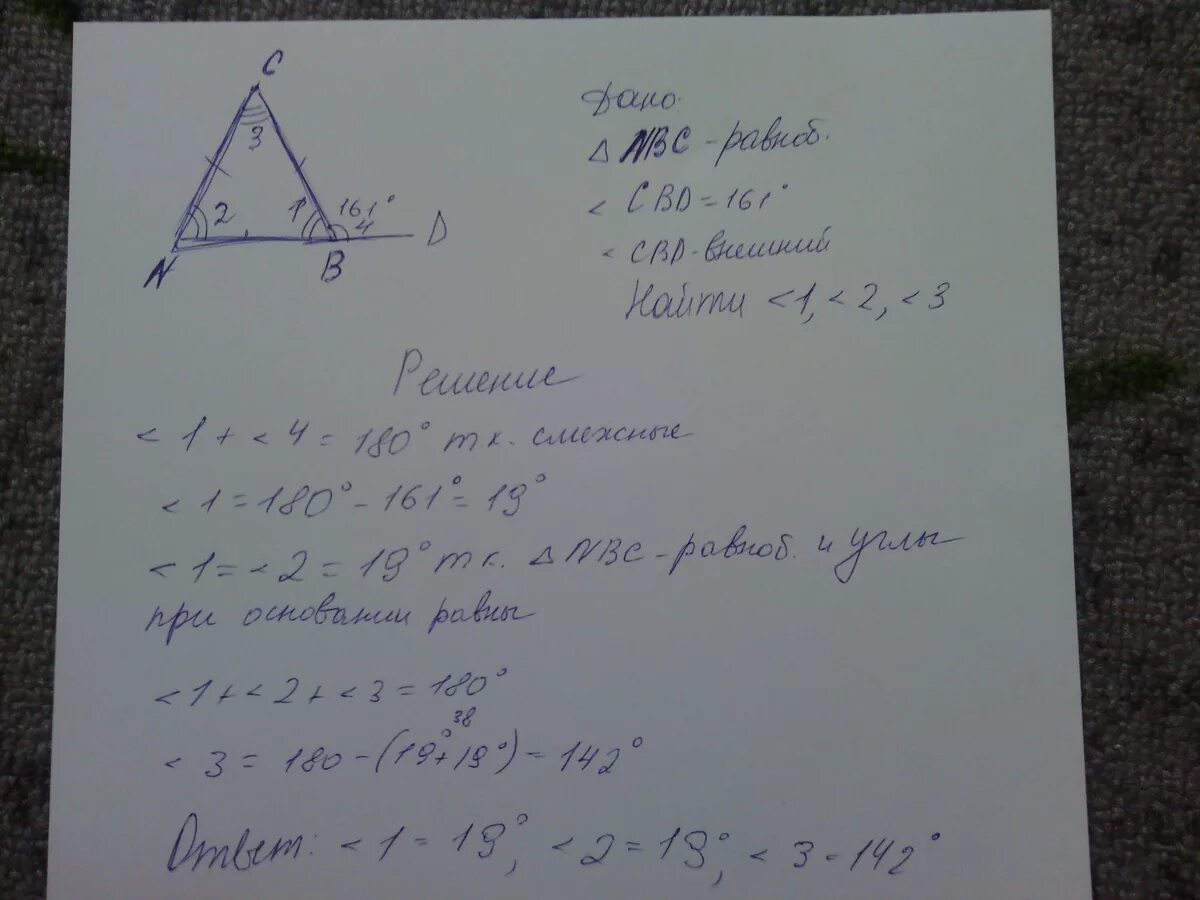 C
3
2 1 161° 4
N B D
Дано.
△ NBC - равноб.
< CBD = 161°
< CBD - внешний
Найти < 1, < 2, < 3
Решение
< 1 + < 4 = 180° т к. смежные
< 1 = 180° - 161° = 19°
< 1 = < 2 = 19° т к. △ NBC - равноб. и углы
при основании равны
< 1 + < 2 + < 3 = 180°
38
< 3 = 180 - (19° + 19°) = 142°
Ответ: < 1 = 19°, < 2 = 19°, < 3 = 142°